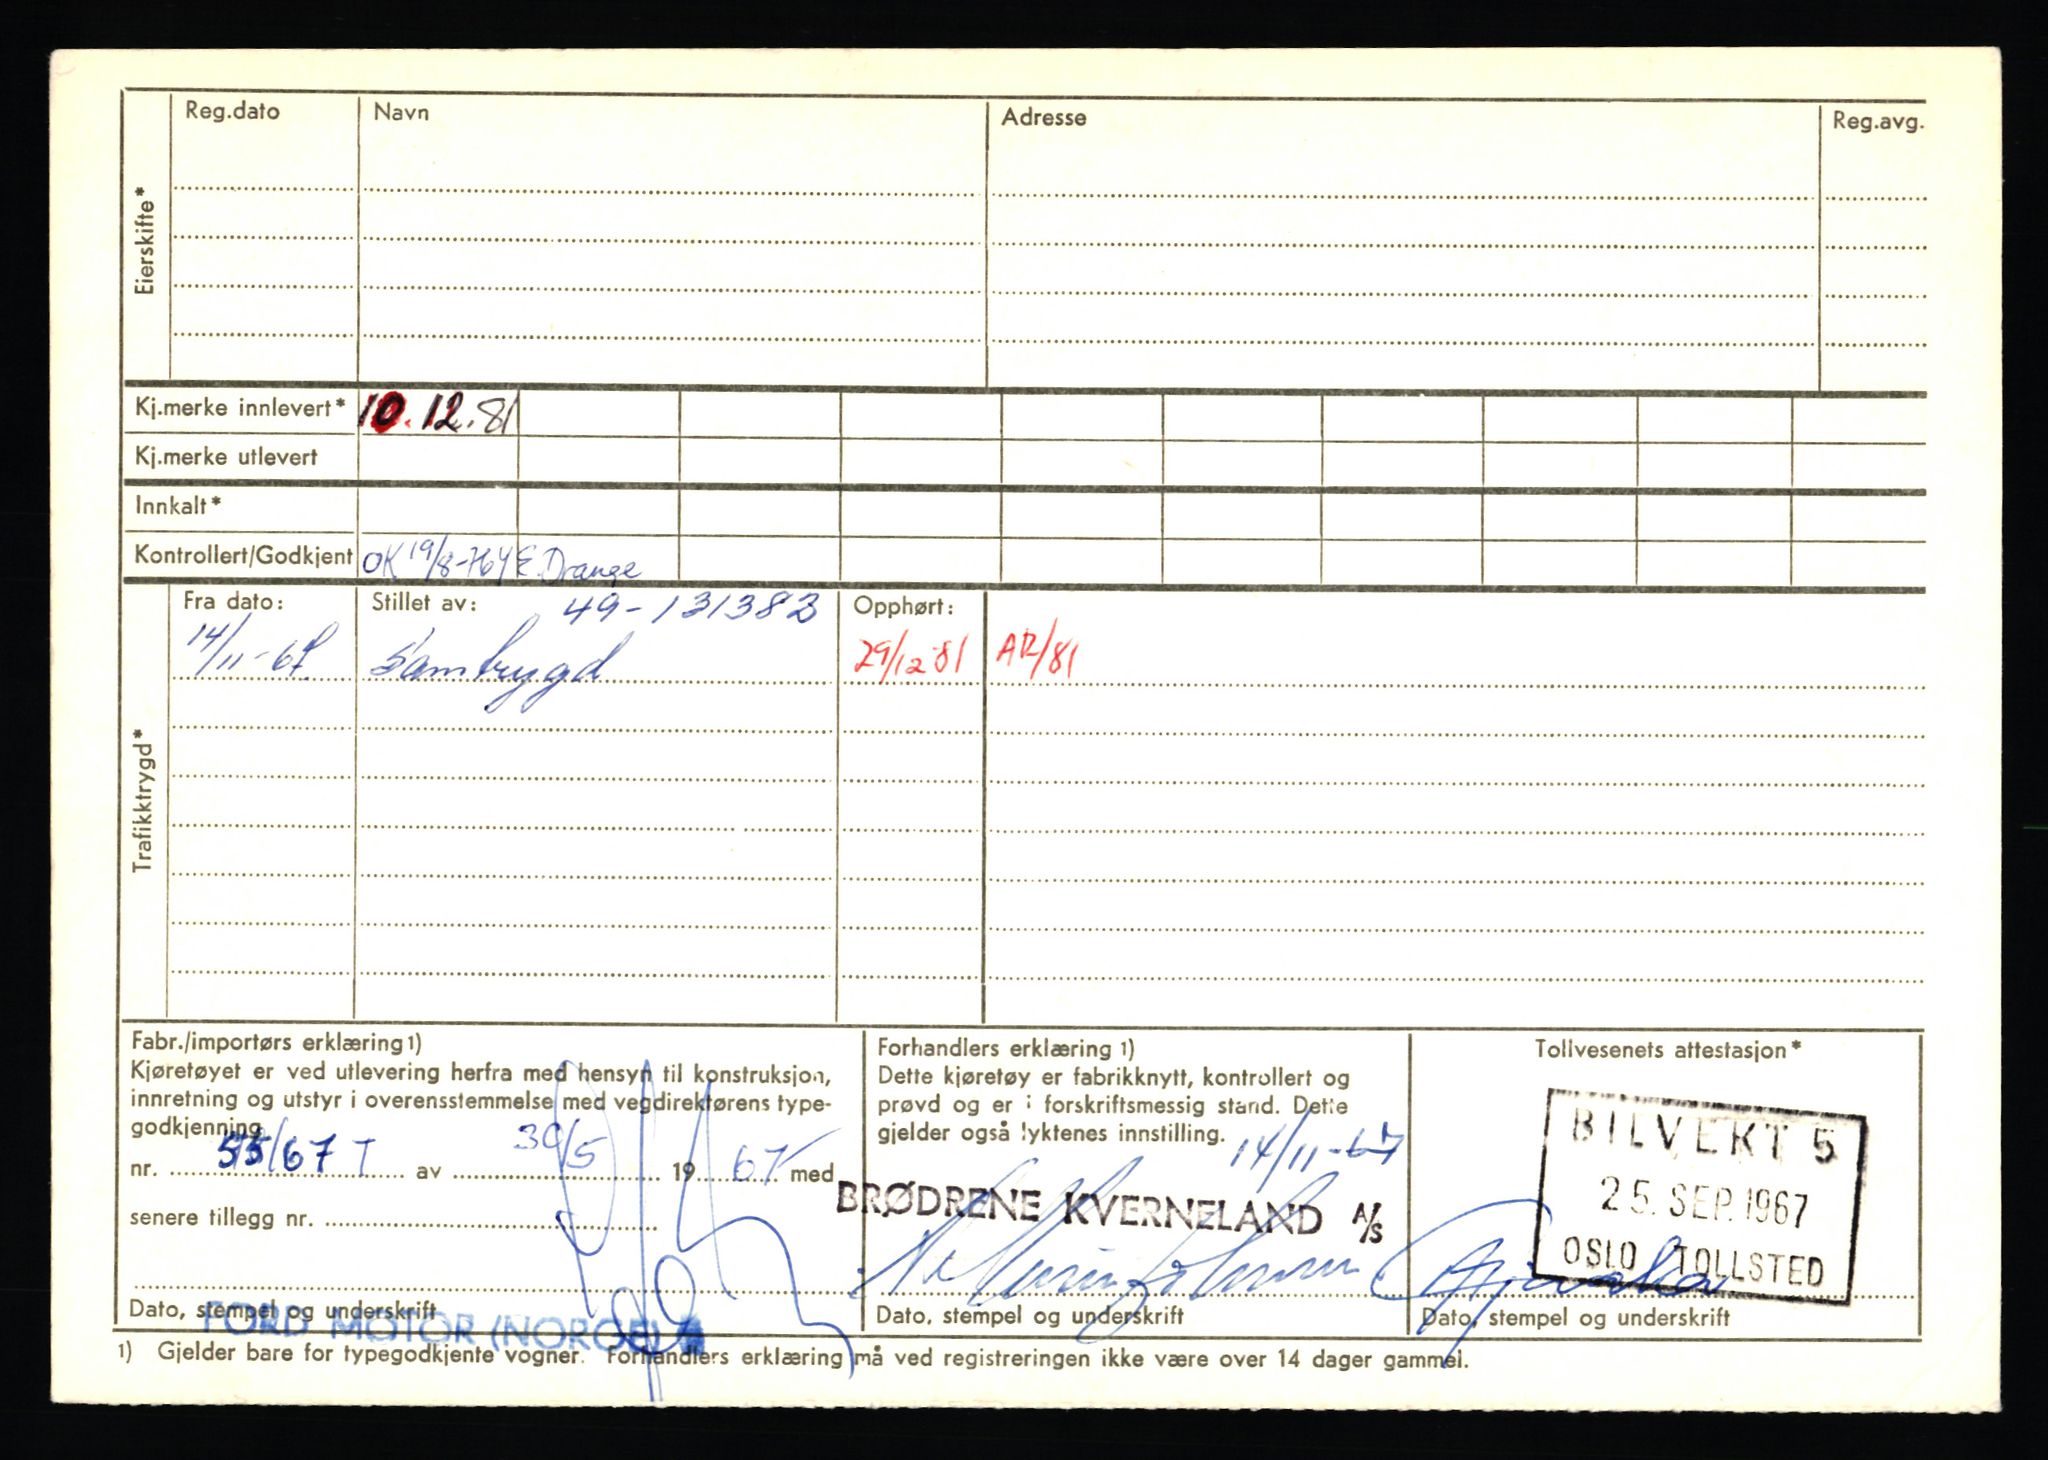 Eierskifte*
Reg.dato Navn Adresse Reg.avg.
Kj.merke innlevert* 10.12.81
Kj.merke utlevert
Innkalt*
Kontrollert/Godkjent OK 19/8-76 E. Drange
Trafikktrygd*
Fra dato: Stillet av: 49-131383 Opphørt:
14/11-67. Samtrygd 29/12 81 AR/81
Fabr./importørs erklæring 1)
Kjøretøyet er ved utlevering herfra med hensyn til konstruksjon,
innretning og utstyr i overensstemmelse med vegdirektørens type-
godkjenning
nr. 55/67 T av 30/5 19 67 med
senere tillegg nr.
Dato, stempel og underskrift
FORD MOTOR (NORGE)
Forhandlers erklæring 1)
Dette kjøretøy er fabrikknytt, kontrollert og
prøvd og er i forskriftsmessig stand. Dette
gjelder også lyktenes innstilling. 14/11-67
BRØDRENE KVERNELAND A/S
Dato, stempel og underskrift
Tollvesenets attestasjon*
BILVEKT 5
25. SEP. 1967
OSLO TOLLSTED
Dato, stempel og underskrift
1) Gjelder bare for typegodkjente vogner. Forhandlers erklæring må ved registreringen ikke være over 14 dager gammel.